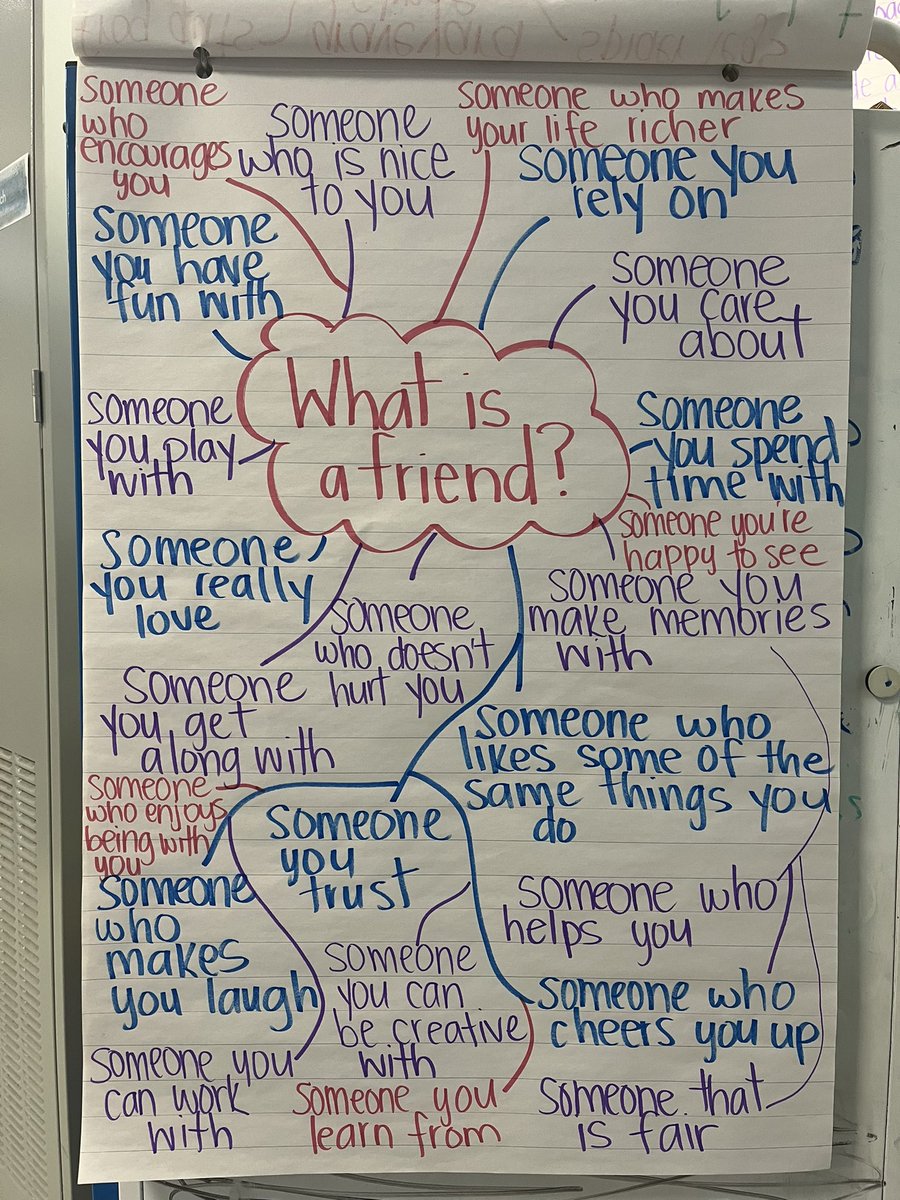 someone
who
encourages
you
someone
who is nice
to you
someone who makes
your life richer
someone you
rely on
someone
you have
fun with
someone
you care
about
What is
a friend?
someone
you play
with
someone
you spend
time with
someone you're
happy to see
someone
you really
love
someone
who doesn't
hurt you
someone you
make memories
with
someone
you get
along with
someone who
likes some of the
same things you
do
someone
who enjoys
being with
you
someone
you
trust
someone
who
makes
you laugh
someone who
helps you
someone
you can
be creative
with
someone who
cheers you up
someone you
can work
with
someone you
learn from
someone that
is fair